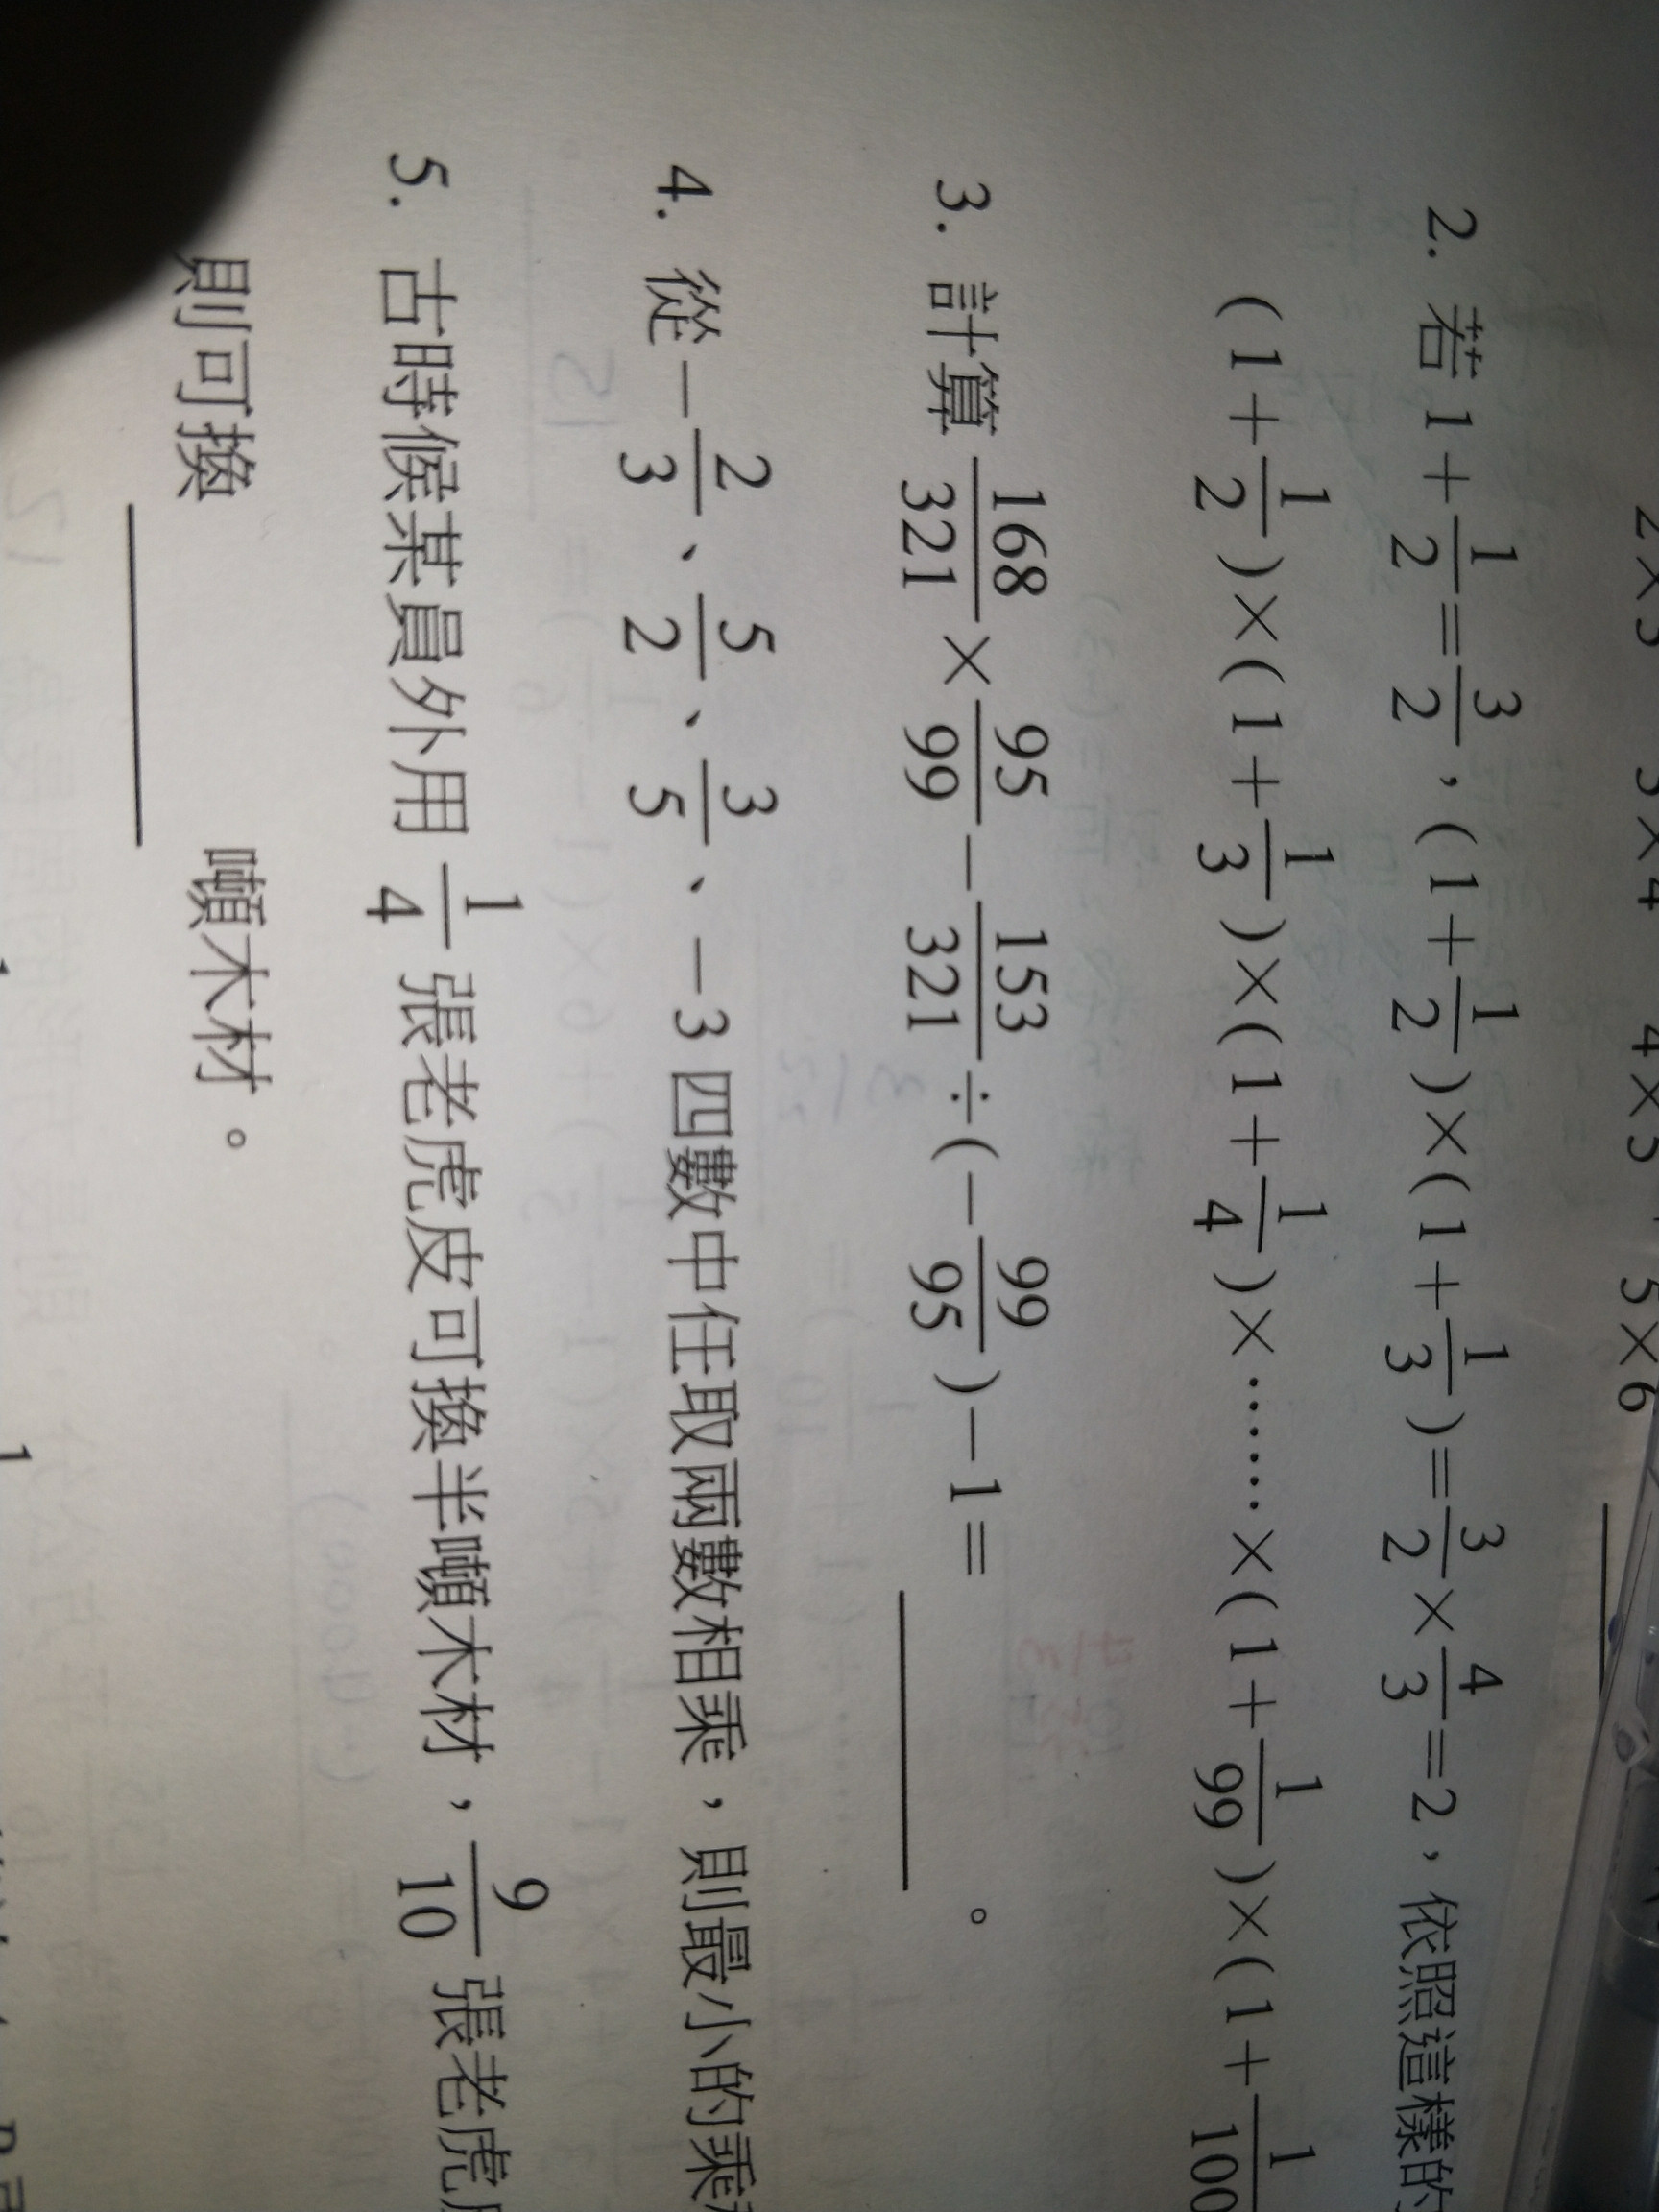 2×3 3×4 4×5 5×6
2. 若 1+1/2=3/2,(1+1/2)×(1+1/3)=3/2×4/3=2,依照這樣的
(1+1/2)×(1+1/3)×(1+1/4)×⋯⋯×(1+1/99)×(1+1/100
3. 計算 168/321×95/99−153/321÷(−99/95)−1=______。
4. 從−2/3、5/2、3/5、−3 四數中任取兩數相乘,則最小的乘
5. 古時候某員外用 1/4 張老虎皮可換半噸木材,9/10 張老虎
則可換______噸木材。